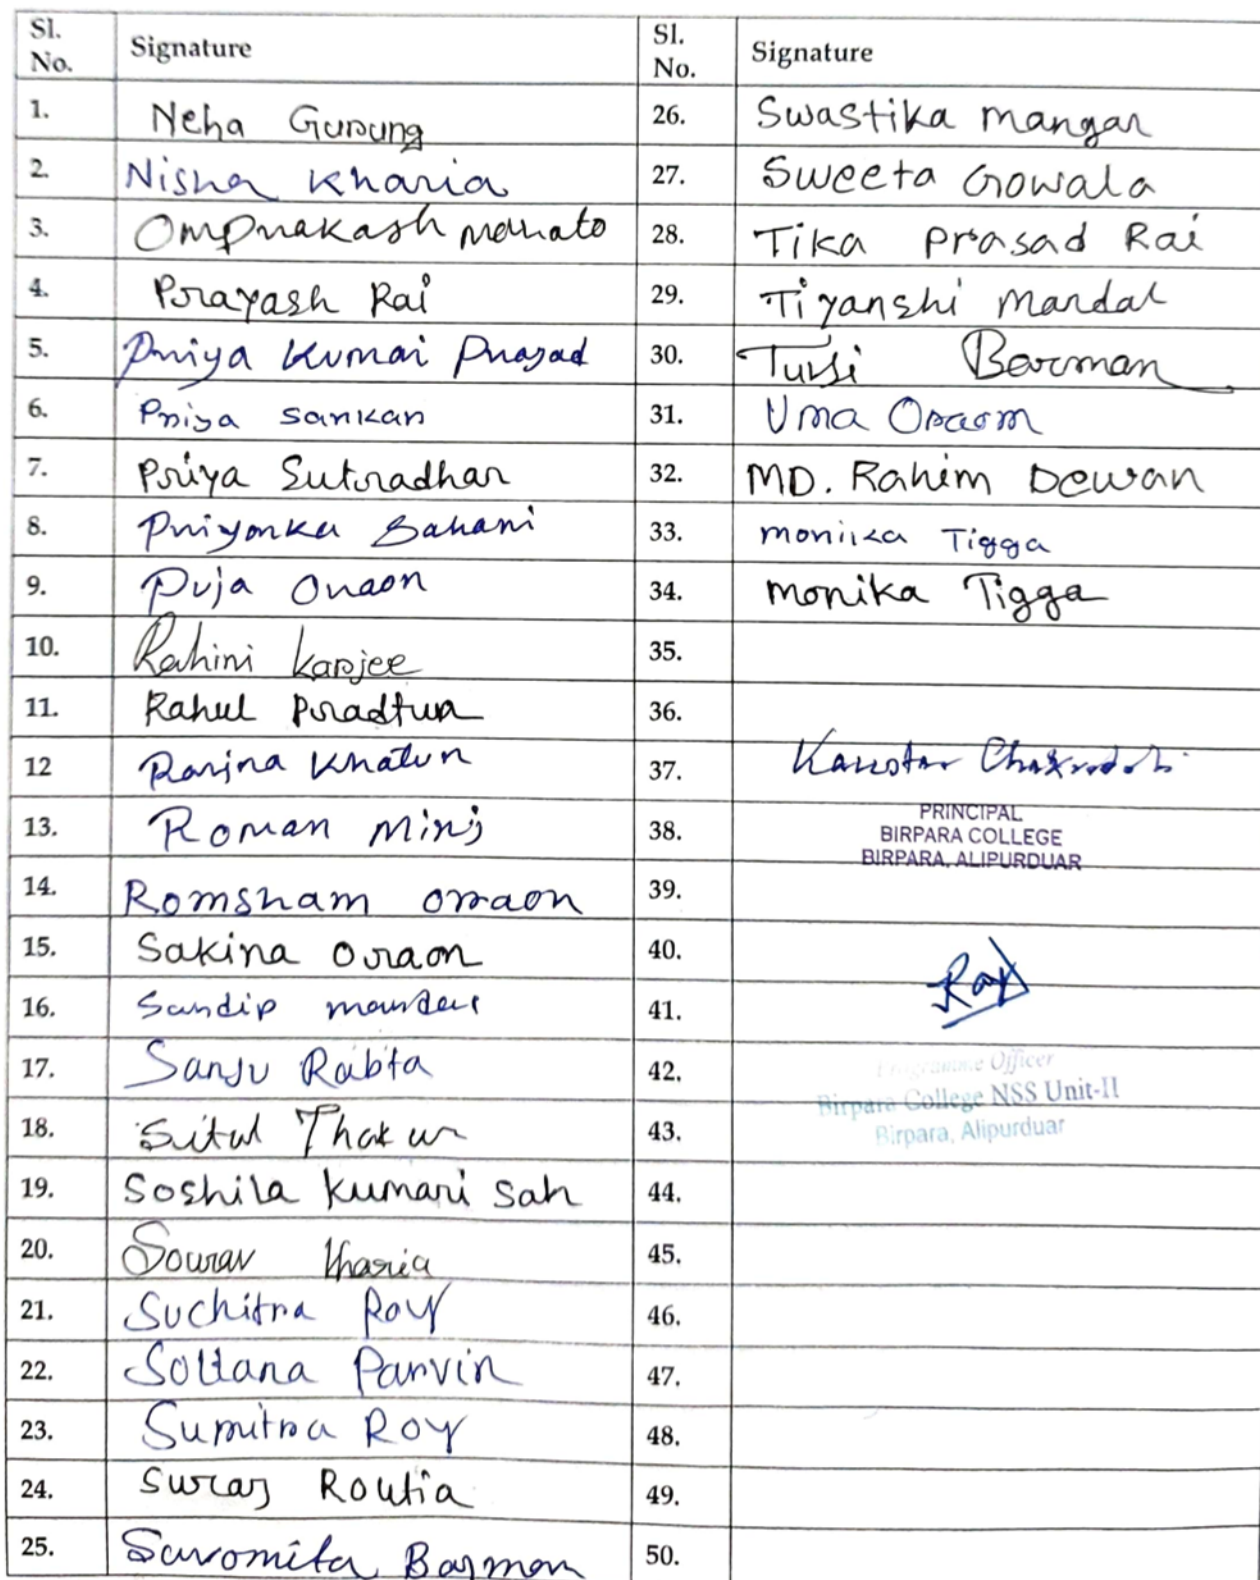 Sl. No. Signature Sl. No. Signature
1. Neha Gurung 26. Swastika Mangar
2. Nisha Kharia 27. Sweeta Gowala
3. Omprakash Mahato 28. Tika Prasad Rai
4. Prayash Rai 29. Tiyanshi Mandal
5. Priya Kumari Prasad 30. Tulsi Barman
6. Priya Sarkar 31. Uma Oraon
7. Priya Sutradhar 32. MD. Rahim Dewan
8. Priyanka Sahani 33. monika Tigga
9. Puja Oraon 34. monika Tigga
10. Rahini Karjee 35.
11. Rahul Pradhan 36.
12 Ranjna Khatun 37. Chakraborti
13. Roman Minj 38. PRINCIPAL
BIRPARA COLLEGE
BIRPARA, ALIPURDUAR
14. Romsham Oraon 39.
15. Sakina Oraon 40.
16. Sandip 41. Ray
17. Sanju Rabha 42. Programme Officer
Birpara College NSS Unit-II
18. Thakur 43. Birpara, Alipurduar
19. Soshila Kumari Sah 44.
20. Sourav Kharia 45.
21. Suchitra Roy 46.
22. Soltana Parvin 47.
23. Sumitra Roy 48.
24. Suraj Routia 49.
25. Barman 50.